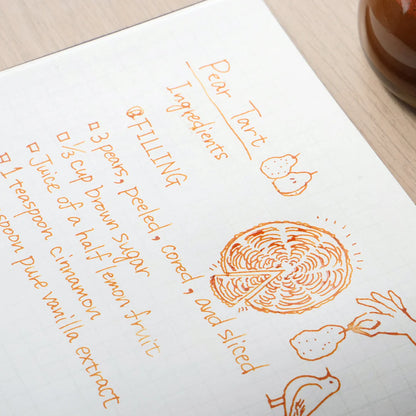 Pear Tart
Ingredients
@FILLING
3 pears, peeled, cored, and sliced
1/3 cup brown sugar
Juice of a half lemon fruit
1 teaspoon cinnamon
spoon pure vanilla extract